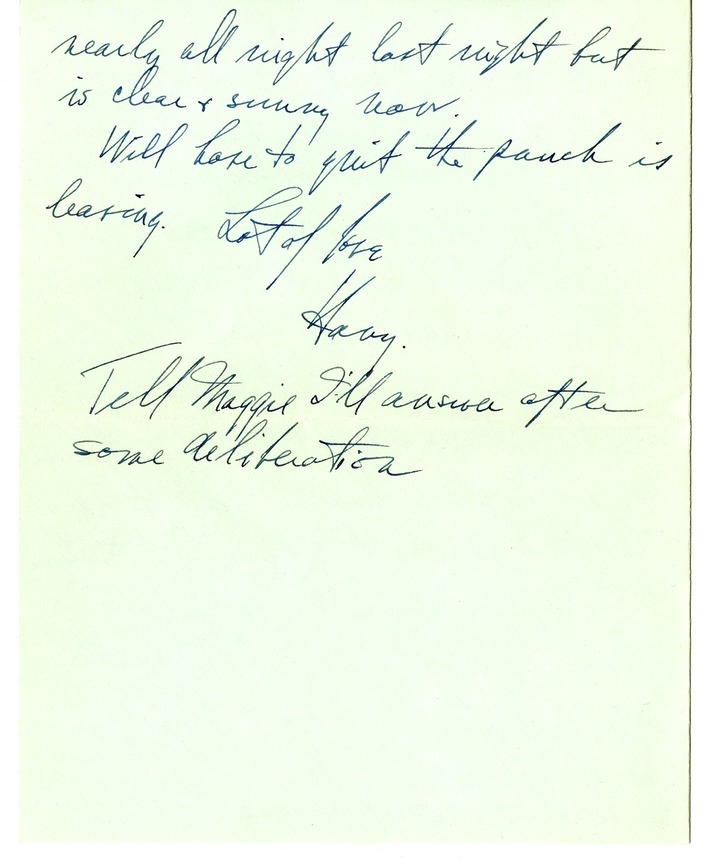 nearly all night last night but
is clear & sunny now.
Will have to quit the pouch is
leaving. Lots of love
Harry.
Tell Maggie I'll answer after
some deliberation